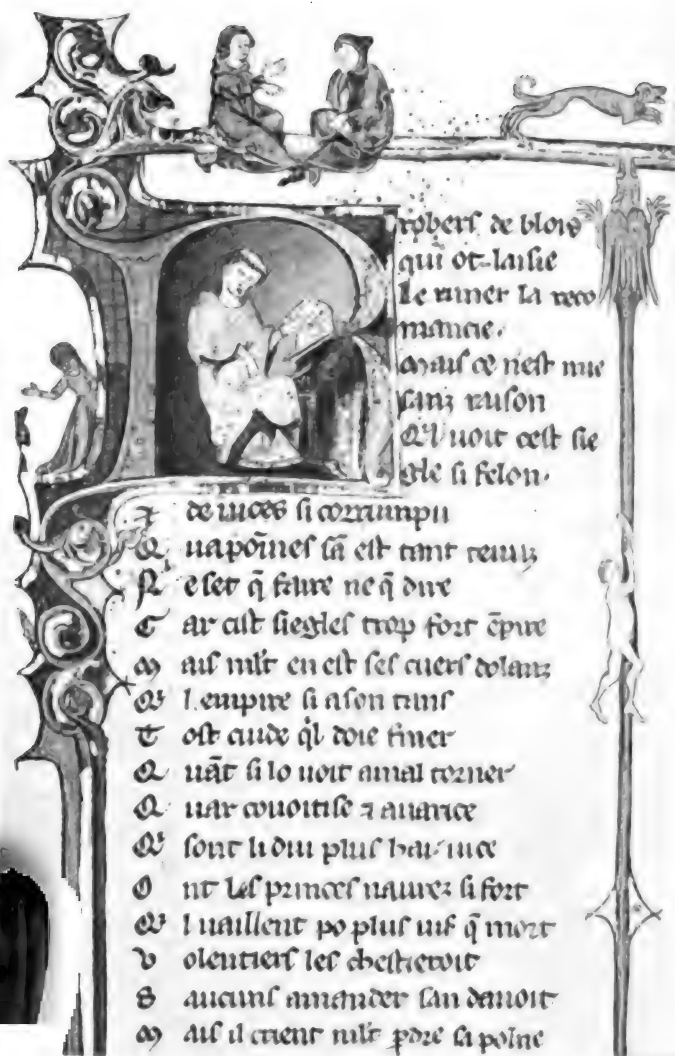 Robers de blois
qui ot laisie
le rimer la reco
mancie.
mais ce nest mie
sanz raison
Qil uoit cest sie
gle si felon.
de uices si corrumpu
Q ua poines san est tant tenuz
N e set q̄ faire ne q̄ dire
C ar cist siegles trop fort ēpire
M ais mlt en est ses cuers dolanz
Qͥ l empire si a son tans
T ost cuide qͥl doie finer
Q uāt si lo uoit a mal torner
Q uar couoitise ⁊ auarice
Qͥ sont li dui plus haut uice
O nt les princes naurez si fort
Qͥ l uaillent po plus uif q̄ mort
V olentiers les chestieroit
S aucuns amander san deuoit
M ais il crient mlt pdre sa poine